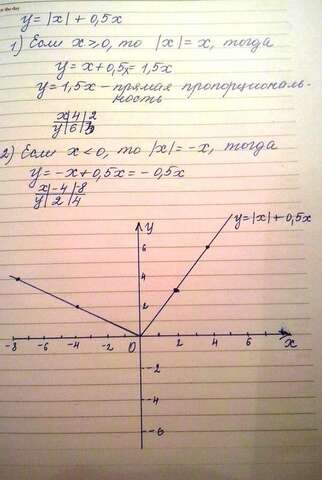 y = |x| + 0,5x
1) Если x ≥ 0, то |x| = x, тогда
y = x + 0,5x = 1,5x
y = 1,5x - прямая пропорциональ-
ность
x | 4 | 2
y | 6 | 3
2) Если x < 0, то |x| = -x, тогда
y = -x + 0,5x = -0,5x
x | -4 | -8
y | 2 | 4
y
y = |x| + 0,5x
6
4
2
-8 -6 -4 -2 0 2 4 6 8 x
-2
-4
-6